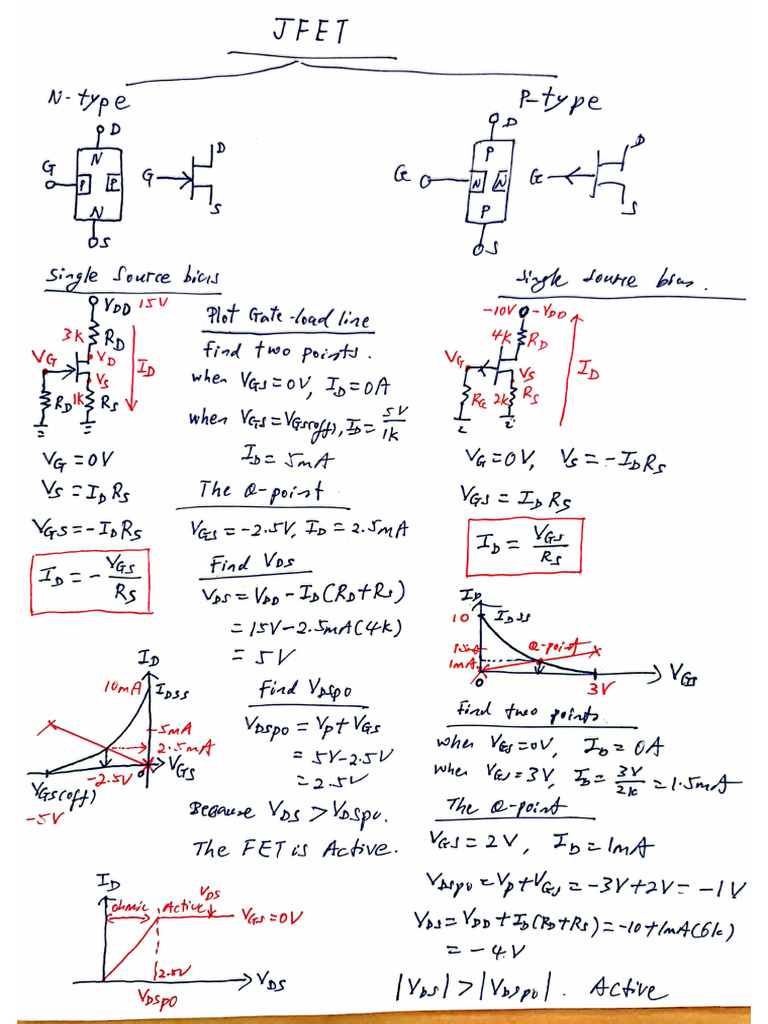 JFET
N-type
P-type
D
G
N
P P
N
S
G
D
S
D
G
P
N N
P
S
G
D
S
Single Source bias
VDD 15V
3K RD
VG
VD
ID
VS
RD
1K RS
VG = 0V
VS = IDRS
VGS = -IDRS
ID = - VGS/RS
Plot Gate-load line
Find two points.
when VGS = 0V, ID = 0A
when VGS = VGS(off), ID = 5V/1K
ID = 5mA
The Q-point
VGS = -2.5V, ID = 2.5mA
Find VDS
VDS = VDD - ID(RD+RS)
= 15V - 2.5mA(4k)
= 5V
Find VDSPO
VDSPO = VP + VGS
= 5V - 2.5V
= 2.5V
Because VDS > VDSPO.
The FET is Active.
ID
10mA IDSS
5mA
2.5mA
-2.5V 0 VGS
VGS(off)
-5V
ID
ohmic Active VDS
VGS = 0V
2.5V
VDS
VDSPO
Single Source bias.
-10V -VDD
4K RD
VG
ID
VS
RG 2K RS
VG = 0V, VS = -IDRS
VGS = IDRS
ID = VGS/RS
ID
10 IDSS
1.5mA Q-point
1mA
0 3V VGS
Find two points
when VGS = 0V, ID = 0A
when VGS = 3V, ID = 3V/2K = 1.5mA
The Q-point
VGS = 2V, ID = 1mA
VDSPO = VP + VGS = -3V + 2V = -1V
VDS = VDD + ID(RD+RS) = -10 + 1mA(6k)
= -4V
|VDS| > |VDSPO|. Active